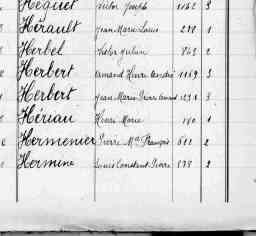 Héguet Victor Joseph 1162 3
Hérault Jean Marie Louis 278 1
Herbel Victor Julien 843 2
Herbert Armand Pierre André 1169 3
Herbert Jean Marie Pierre Armand 3
Hériau Henri Marie 180 1
Hermenier Pierre Mie François 611 2
Hermine Louis Constant Pierre 578 2